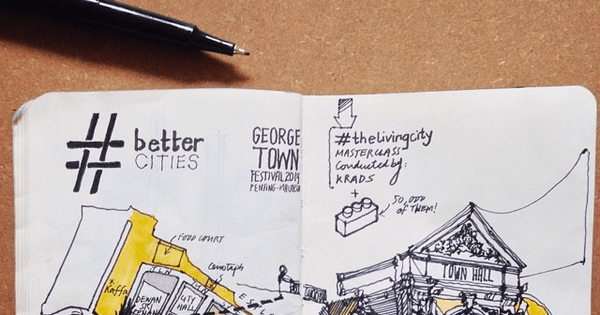 # better
CITIES
GEORGE
TOWN
FESTIVAL 2014
PENANG · MALAYSIA
#thelivingcity
MASTERCLASS
Conducted by:
KRADS
+
50,000
OF THEM!
FOOD COURT
Cenotaph
Kaffa
DEWAN
SRI
PINANG
CITY
HALL
TOWN HALL